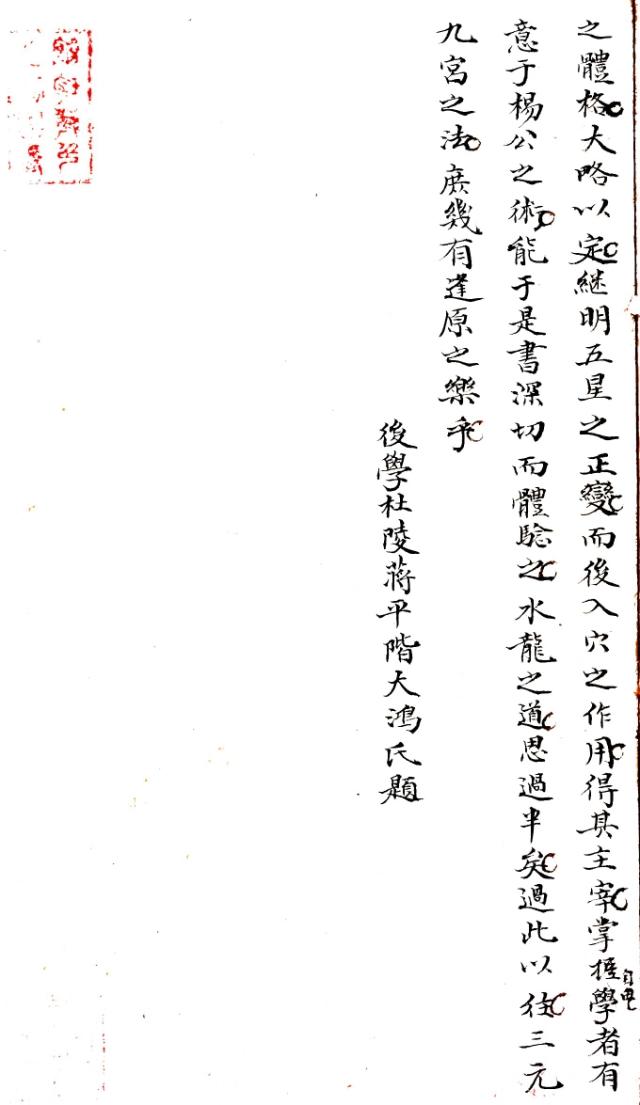 之體格大略以定継明五星之正變而後入穴之作用得其主宰掌握學者有
意于楊公之術能于是書深切而體騐之水龍之道思過半矣過此以往三元
九宮之法庶幾有逢原之樂乎
後學杜陵蔣平階大鴻氏題